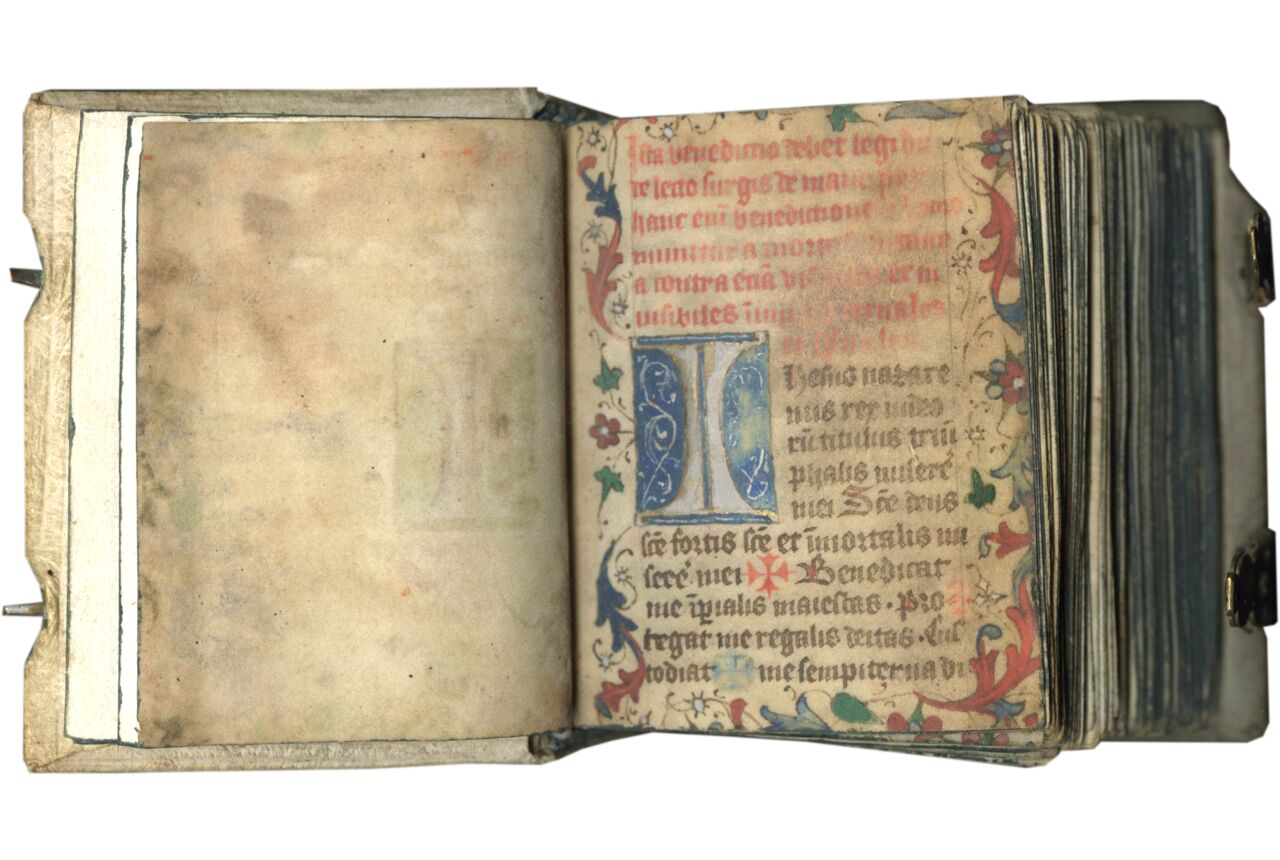 Ista benedictio debet legi
de lecto surgis de mane
hanc eni benedictione
munitur a morte
a contra eciā et in
uisibiles
Ihesus nazare
nus rex iudeo
rū titulus triū
phalis misere
mei Scē deus
scē fortis scē et īmortalis mi
sere mei ✠ Benedicat
me īpialis maiestas · pro ✠
tegat me regalis deitas · Cus
todiat ✠ me sempiterna di